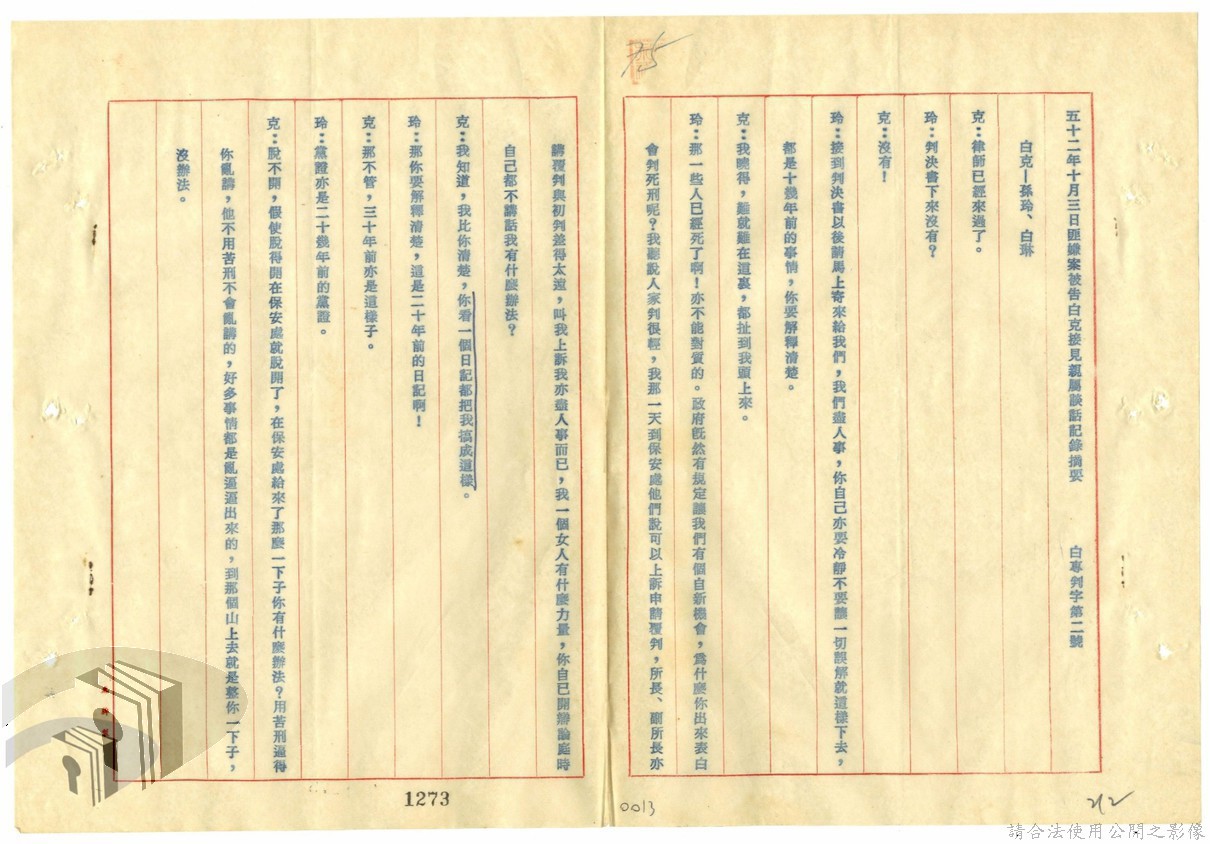 75
五十二年十月三日匪嫌案被告白克接見親屬談話記錄摘要　白專判字第二號
白克—孫玲、白琳
克：律師已經來過了。
玲：判決書下來沒有？
克：沒有！
玲：接到判決書以後請馬上寄來給我們，我們盡人事，你自己亦要冷靜不要讓一切誤解就這樣下去，
都是十幾年前的事情，你要解釋清楚。
克：我曉得，難就難在這裏，都扯到我頭上來。
玲：那一些人已經死了啊！亦不能對質的。政府旣然有規定讓我們有個自新機會，爲什麼你出來表白
會判死刑呢？我聽說人家判很輕，我那一天到保安處他們說可以上訴申請覆判，所長、副所長亦
講覆判與初判差得太遠，叫我上訴我亦盡人事而已，我一個女人有什麼力量，你自己開辯論庭時
自己都不講話我有什麼辦法？
克：我知道，我比你清楚，你看一個日記都把我搞成這樣。
玲：那你要解釋清楚，這是二十年前的日記啊！
克：那不管，三十年前亦是這樣子。
玲：黨證亦是二十幾年前的黨證。
克：脫不開，假使脫得開在保安處就脫開了，在保安處給來了那麼一下子你有什麼辦法？用苦刑逼得
你亂講，他不用苦刑不會亂講的，好多事情都是亂逼逼出來的，到那個山上去就是整你一下子，
沒辦法。
1273
0013
212
請合法使用公開之影像